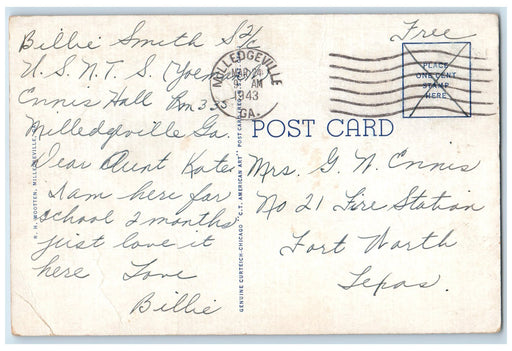 Billie Smith S 2/c
U. S. N. T. S. (Yoeman)
Ennis Hall Rm 333
Milledgeville Ga.
Dear Aunt Kate
I am here for
school 2 months
just love it
here Love
Billie
Free
MILLEDGEVILLE
MAR 24
9 AM
1943
GA.
PLACE
ONE CENT
STAMP
HERE
POST CARD
Mrs. G. N. Ennis
No 21 Fire Station
Fort Worth
Texas.
R. H. WOOTTEN, MILLEDGEVILLE
GENUINE CURTEICH-CHICAGO "C.T. AMERICAN ART" POST CARD